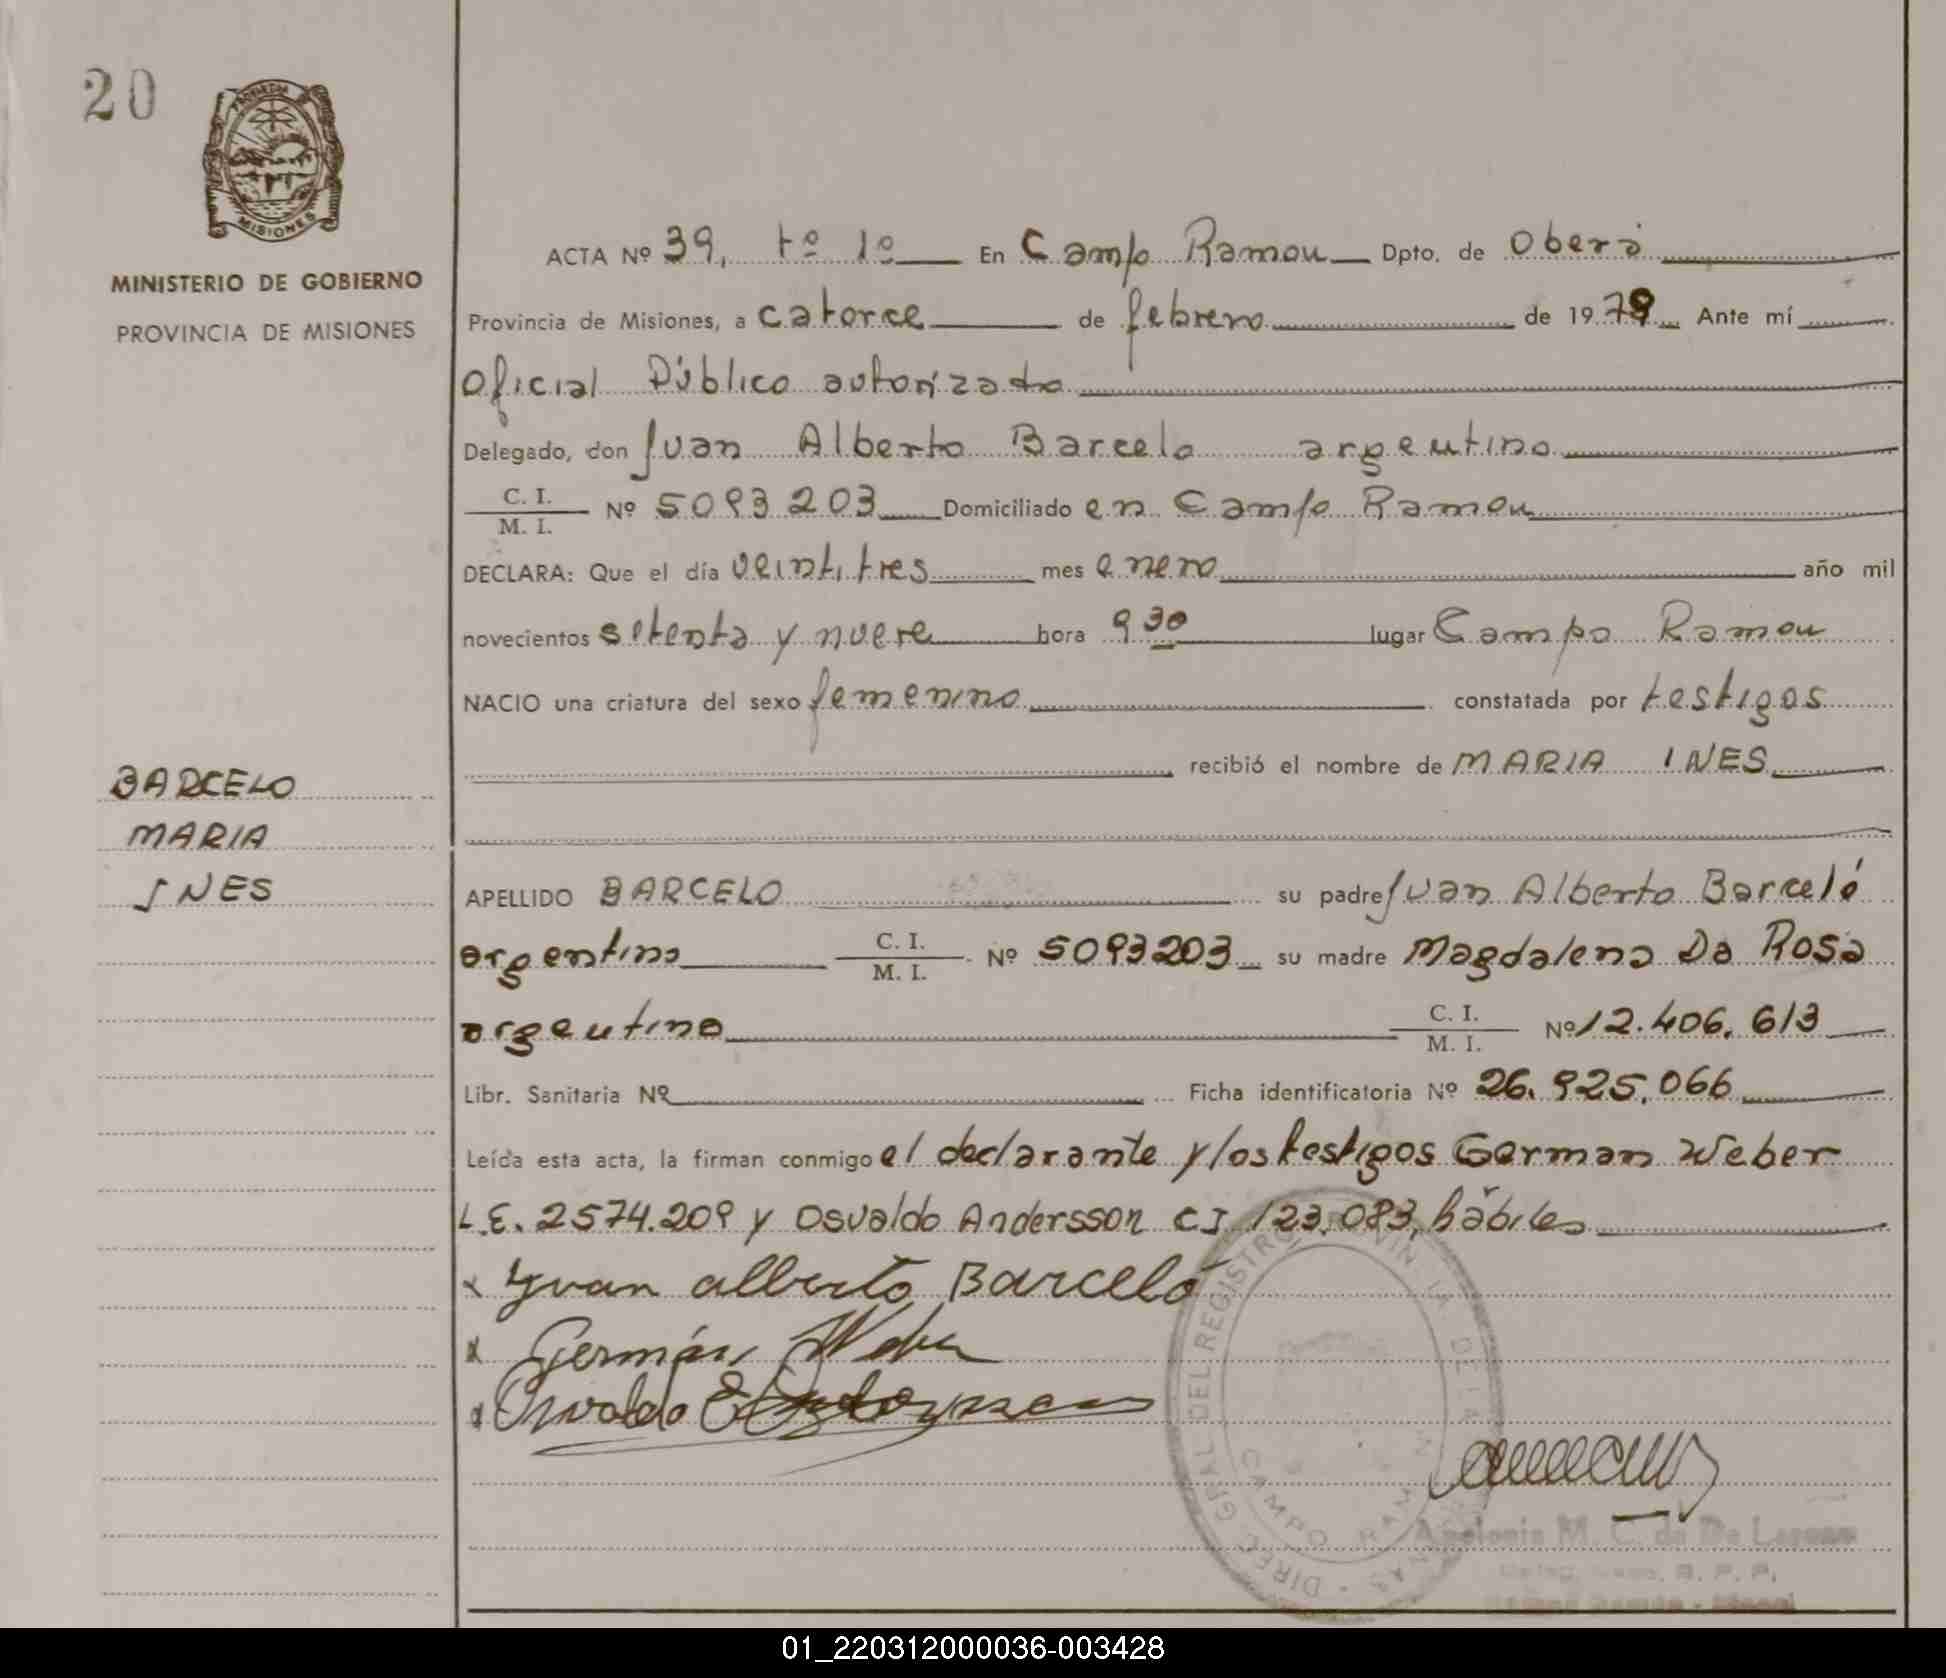 20
PROVINCIA
MISIONES
MINISTERIO DE GOBIERNO
PROVINCIA DE MISIONES
ACTA Nº 39, tº 1º En Campo Ramon Dpto. de Oberá
Provincia de Misiones, a catorce de febrero de 1979 Ante mí
Oficial Público autorizado
Delegado, don Juan Alberto Barcelo argentino
C. I.
M. I.
Nº 5093203 Domiciliado en Campo Ramon
DECLARA: Que el día veintitres mes enero año mil
novecientos setenta y nueve hora 9 30 lugar Campo Ramon
NACIO una criatura del sexo femenino constatada por testigos
recibió el nombre de MARIA INES
BARCELO
MARIA
INES
APELLIDO BARCELO su padre Juan Alberto Barceló
argentino C. I. M. I. Nº 5093203 su madre Magdalena Da Rosa
argentina C. I. M. I. Nº 12.406.613
Libr. Sanitaria Nº Ficha identificatoria Nº 26.925.066
Leída esta acta, la firman conmigo el declarante y los testigos German Weber
L.E. 2574.209 y Osvaldo Andersson CI 123.083, hábiles
x Juan alberto Barceló
x Germán Weber
x Osvaldo E
DIREC GRAL DEL REGISTRO PROVIN IA DE LA
CAMPO RAM N
Apolonia M. C. de De
R. P. P.
01_220312000036-003428